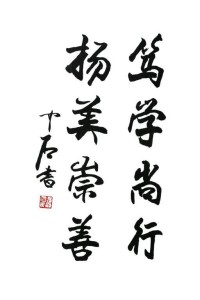 笃学尚行
扬美崇善
中石書